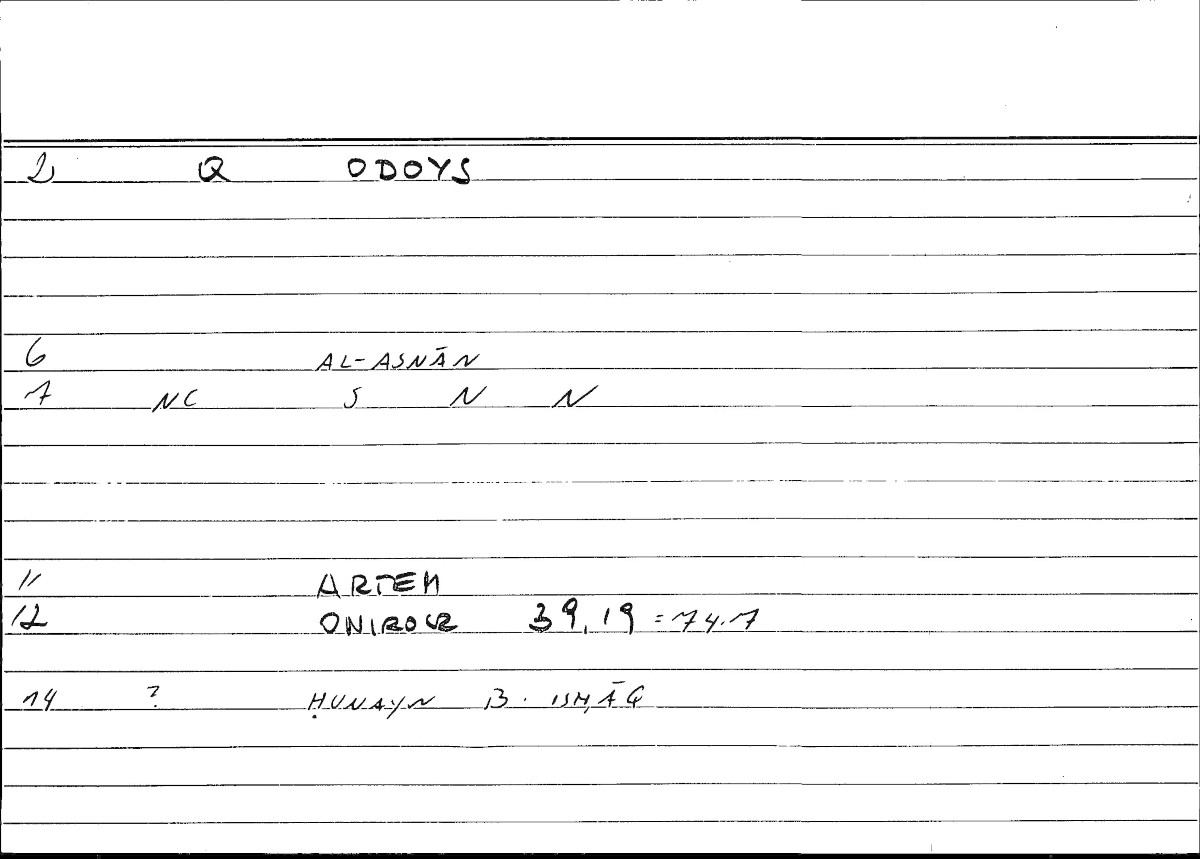 2 Q ODOYS
6 AL-ASNĀN
7 NC S N N
11 ARTEM
12 ONIROCR 39,19 = 74.7
14 ? ḤUNAYN B. ISḤĀQ